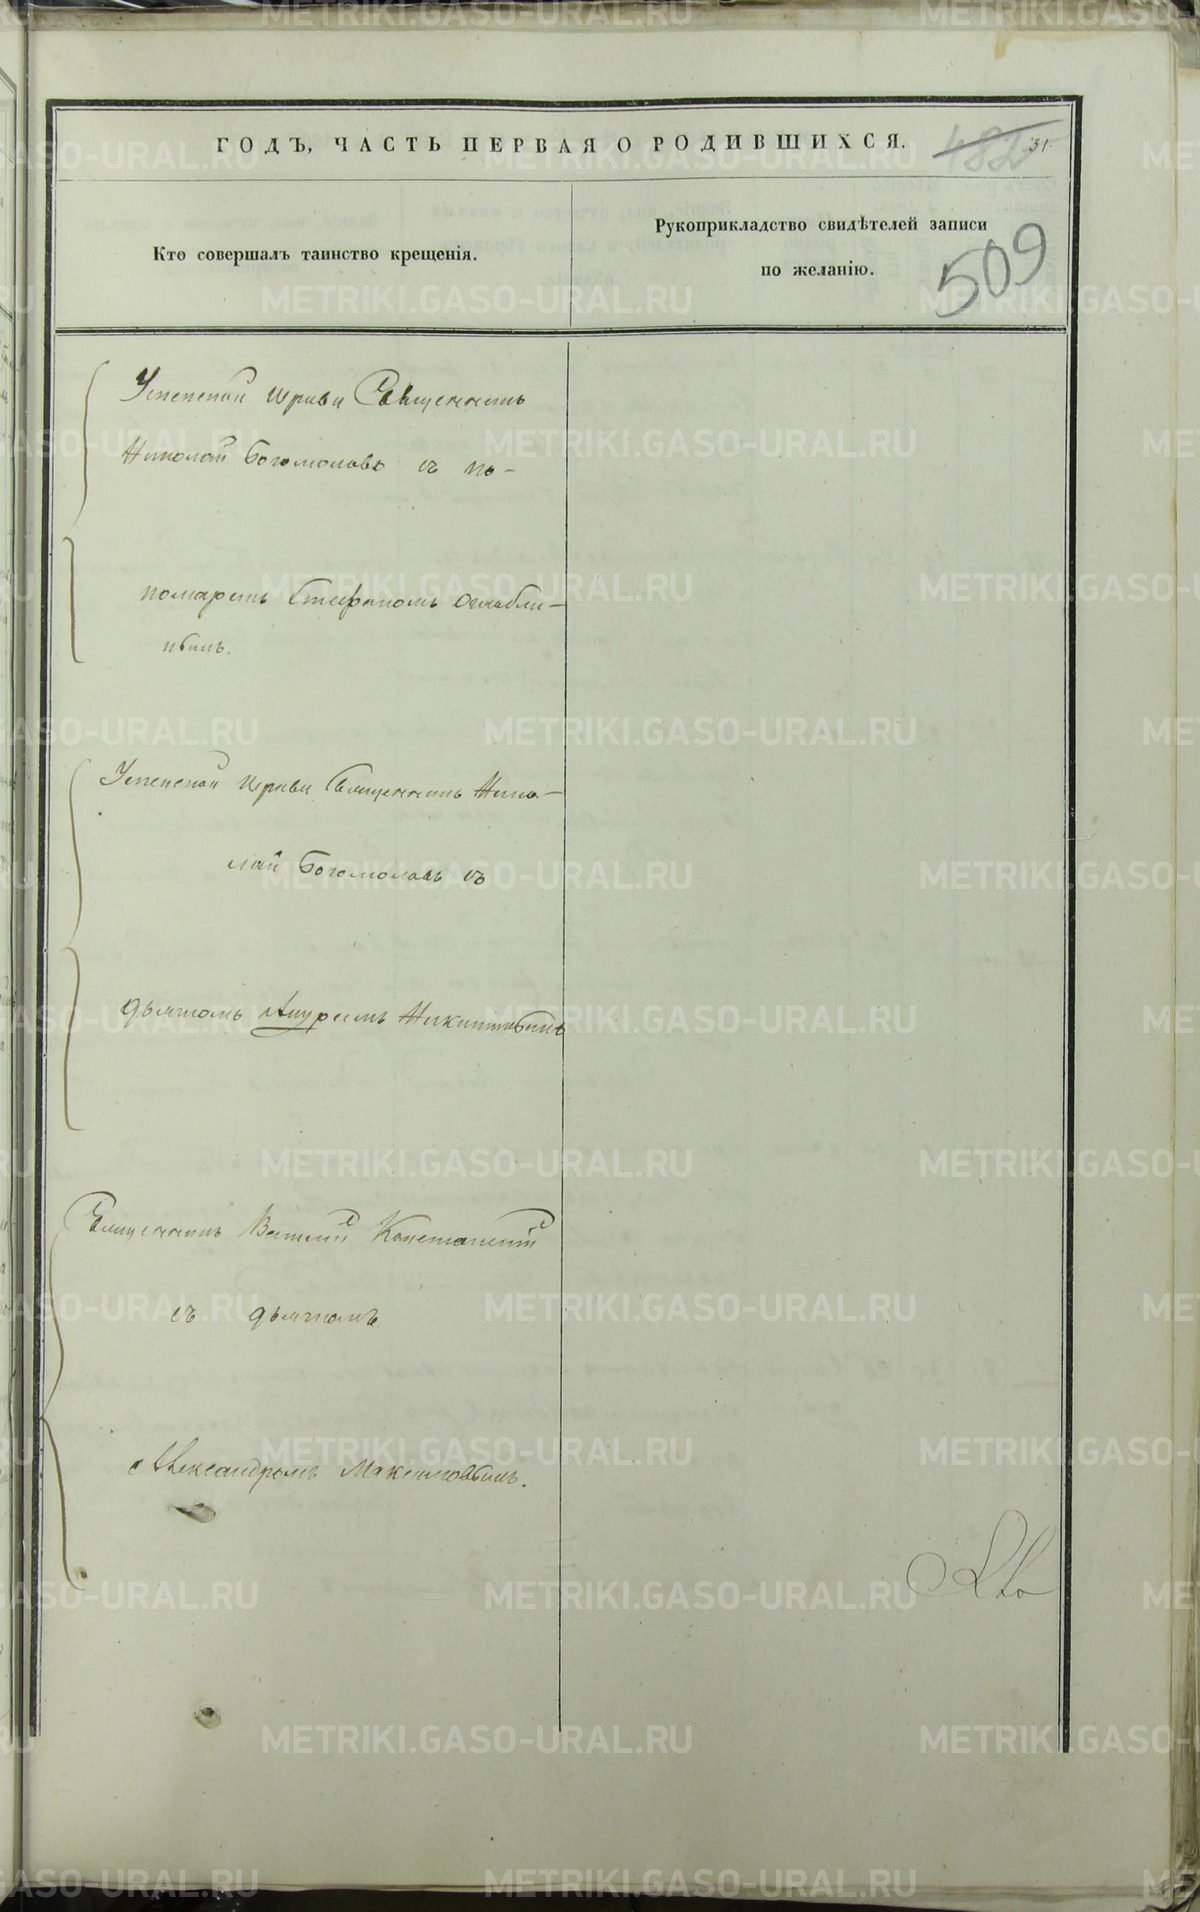 ГОДЪ, ЧАСТЬ ПЕРВАЯ О РОДИВШИХСЯ.
482
31
Кто совершалъ таинство крещенія.
Рукоприкладство свидѣтелей записи
по желанію.
509
Успенской церкви Священникъ
Николай Богомоловъ съ по-
номаремъ Стефаномъ
Успенской церкви Священникъ Нико-
лай Богомоловъ съ
дьячкомъ Андреемъ Никитинымъ
Священникъ Василий
съ дьячкомъ
Александромъ Максимовымъ.
METRIKI.GASO-URAL.RU